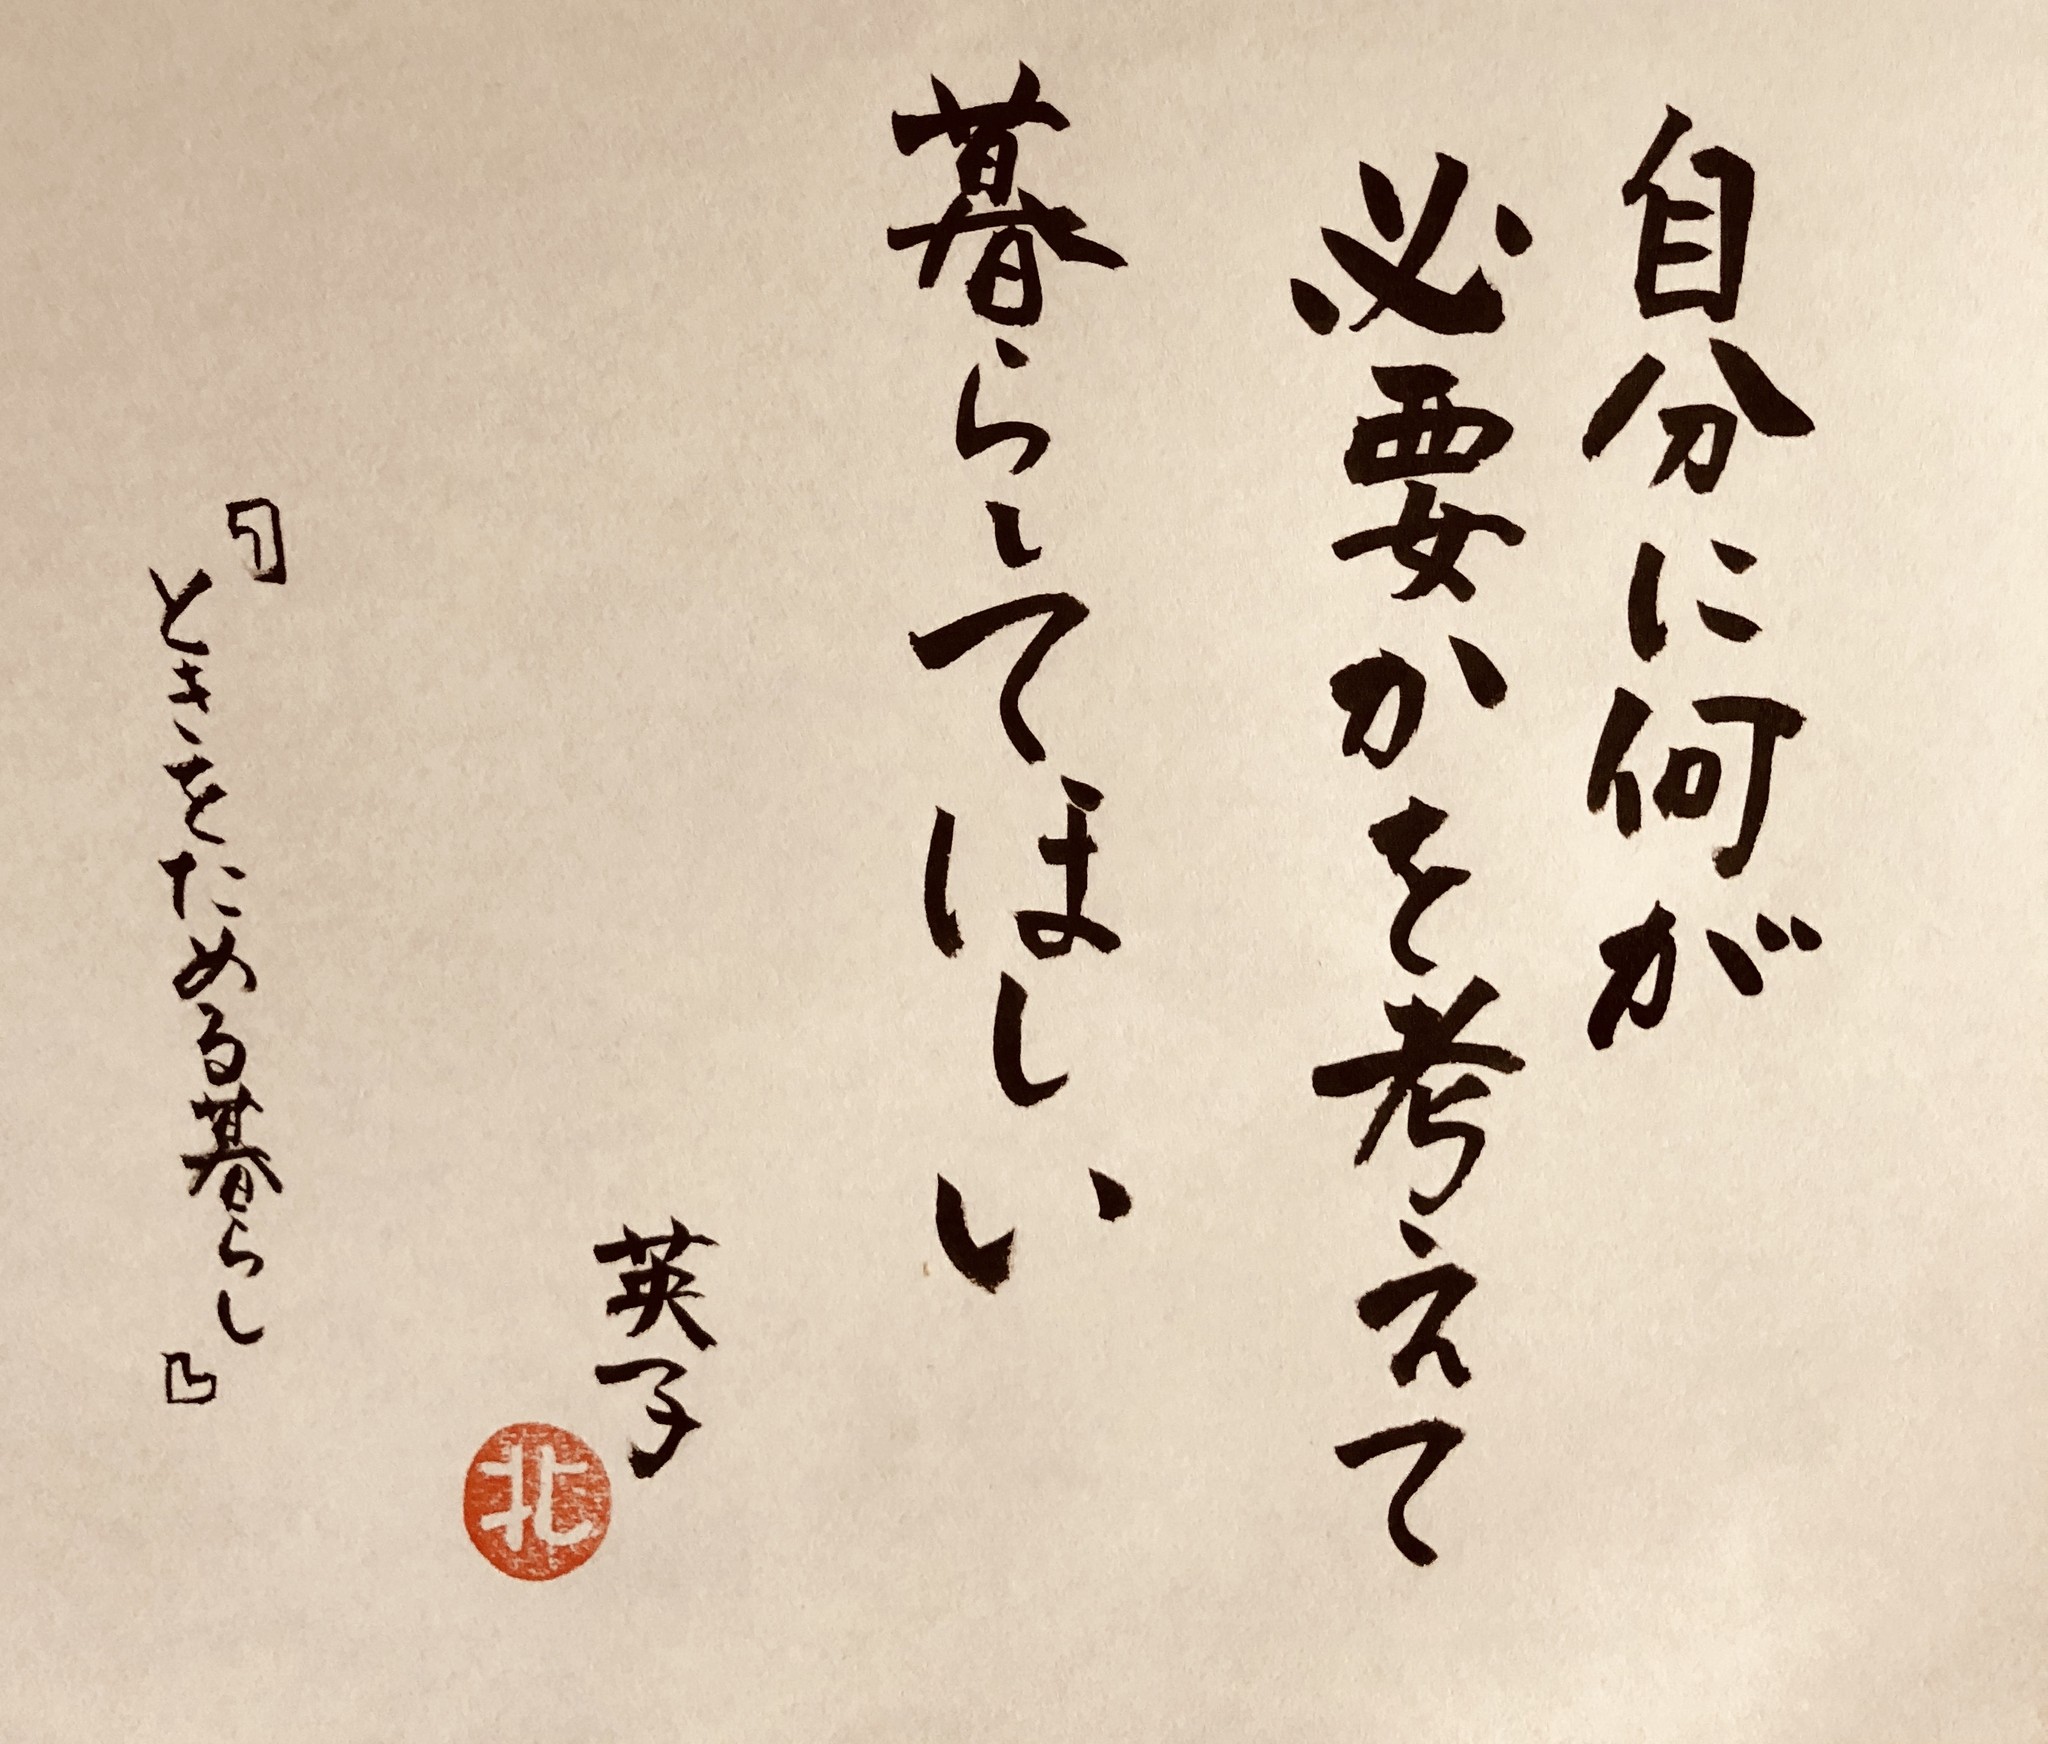 自分に何が
必要かを考えて
暮らしてほしい
英子
北
『ときをためる暮らし』